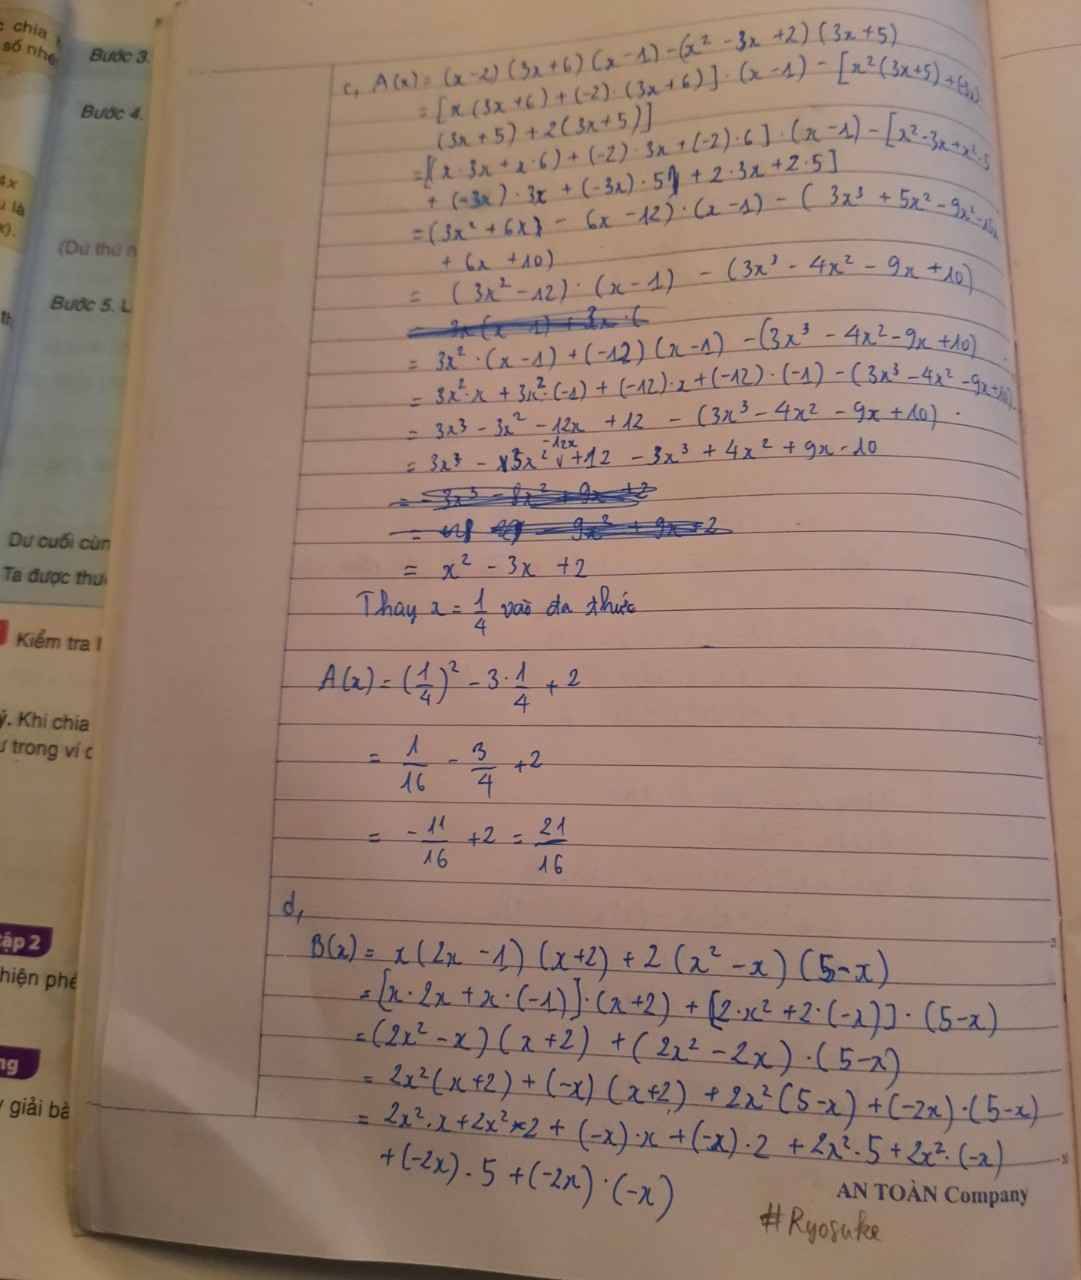 c chia
số nhé
Bước 3.
Bước 4.
4x
u là
x).
(Dư thứ n
Bước 5. L
th
Dư cuối cùn
Ta được thư
Kiểm tra l
ý. Khi chia
ư trong ví d
tập 2
hiện phé
ng
y giải bà
c, A(x) = (x-2)(3x+6)(x-1)-(x² - 3x +2)(3x+5)
= [x(3x+6)+(-2)·(3x+6)]·(x-1) - [x²(3x+5)+(-3x)
(3x+5)+2(3x+5)]
=[(x·3x+x·6)+(-2)·3x+(-2)·6]·(x-1)-[x²·3x+x²·5
+(-3x)·3x+(-3x)·5]+2·3x+2·5]
=(3x²+6x) - 6x -12)·(x-1) - (3x³ + 5x² - 9x² - 15x
+ 6x +10)
= (3x²-12)·(x-1) - (3x³ - 4x² - 9x +10)
= 3x²·(x-1)+(-12)(x-1) -(3x³ - 4x² -9x +10)
= 3x²·x + 3x²·(-1)+(-12)·x+(-12)·(-1)-(3x³-4x²-9x+10)
= 3x³ - 3x² - 12x +12 - (3x³ - 4x² - 9x +10).
= 3x³ - 3x² -12x +12 - 3x³ + 4x² + 9x - 10
= x² - 3x +2
Thay x = 1/4 vào đa thức
A(x) = (1/4)² - 3·1/4 + 2
= 1/16 - 3/4 +2
= -11/16 +2 = 21/16
d,
B(x) = x(2x -1)(x+2)+2(x² -x)(5-x)
=[x·2x+x·(-1)]·(x+2)+[2·x²+2·(-x)]·(5-x)
=(2x²-x)(x+2) +(2x² -2x)·(5-x)
= 2x²(x+2)+(-x)(x+2) +2x²(5-x)+(-2x)·(5-x)
= 2x²·x+2x²·2+(-x)·x+(-x)·2 +2x²·5+2x²·(-x)
+(-2x)·5+(-2x)·(-x)
AN TOÀN Company
#Ryosuke